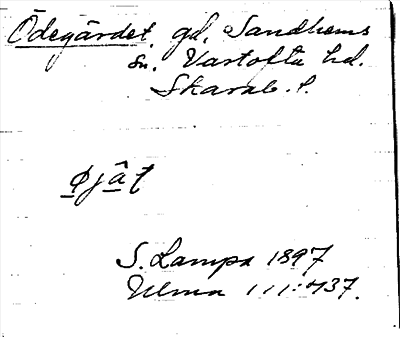 Ödegärdet, gd, Sandhems
sn. Vartofta hd.
Skarab. l.
S. Lampa 1897
Ulma 111:437.